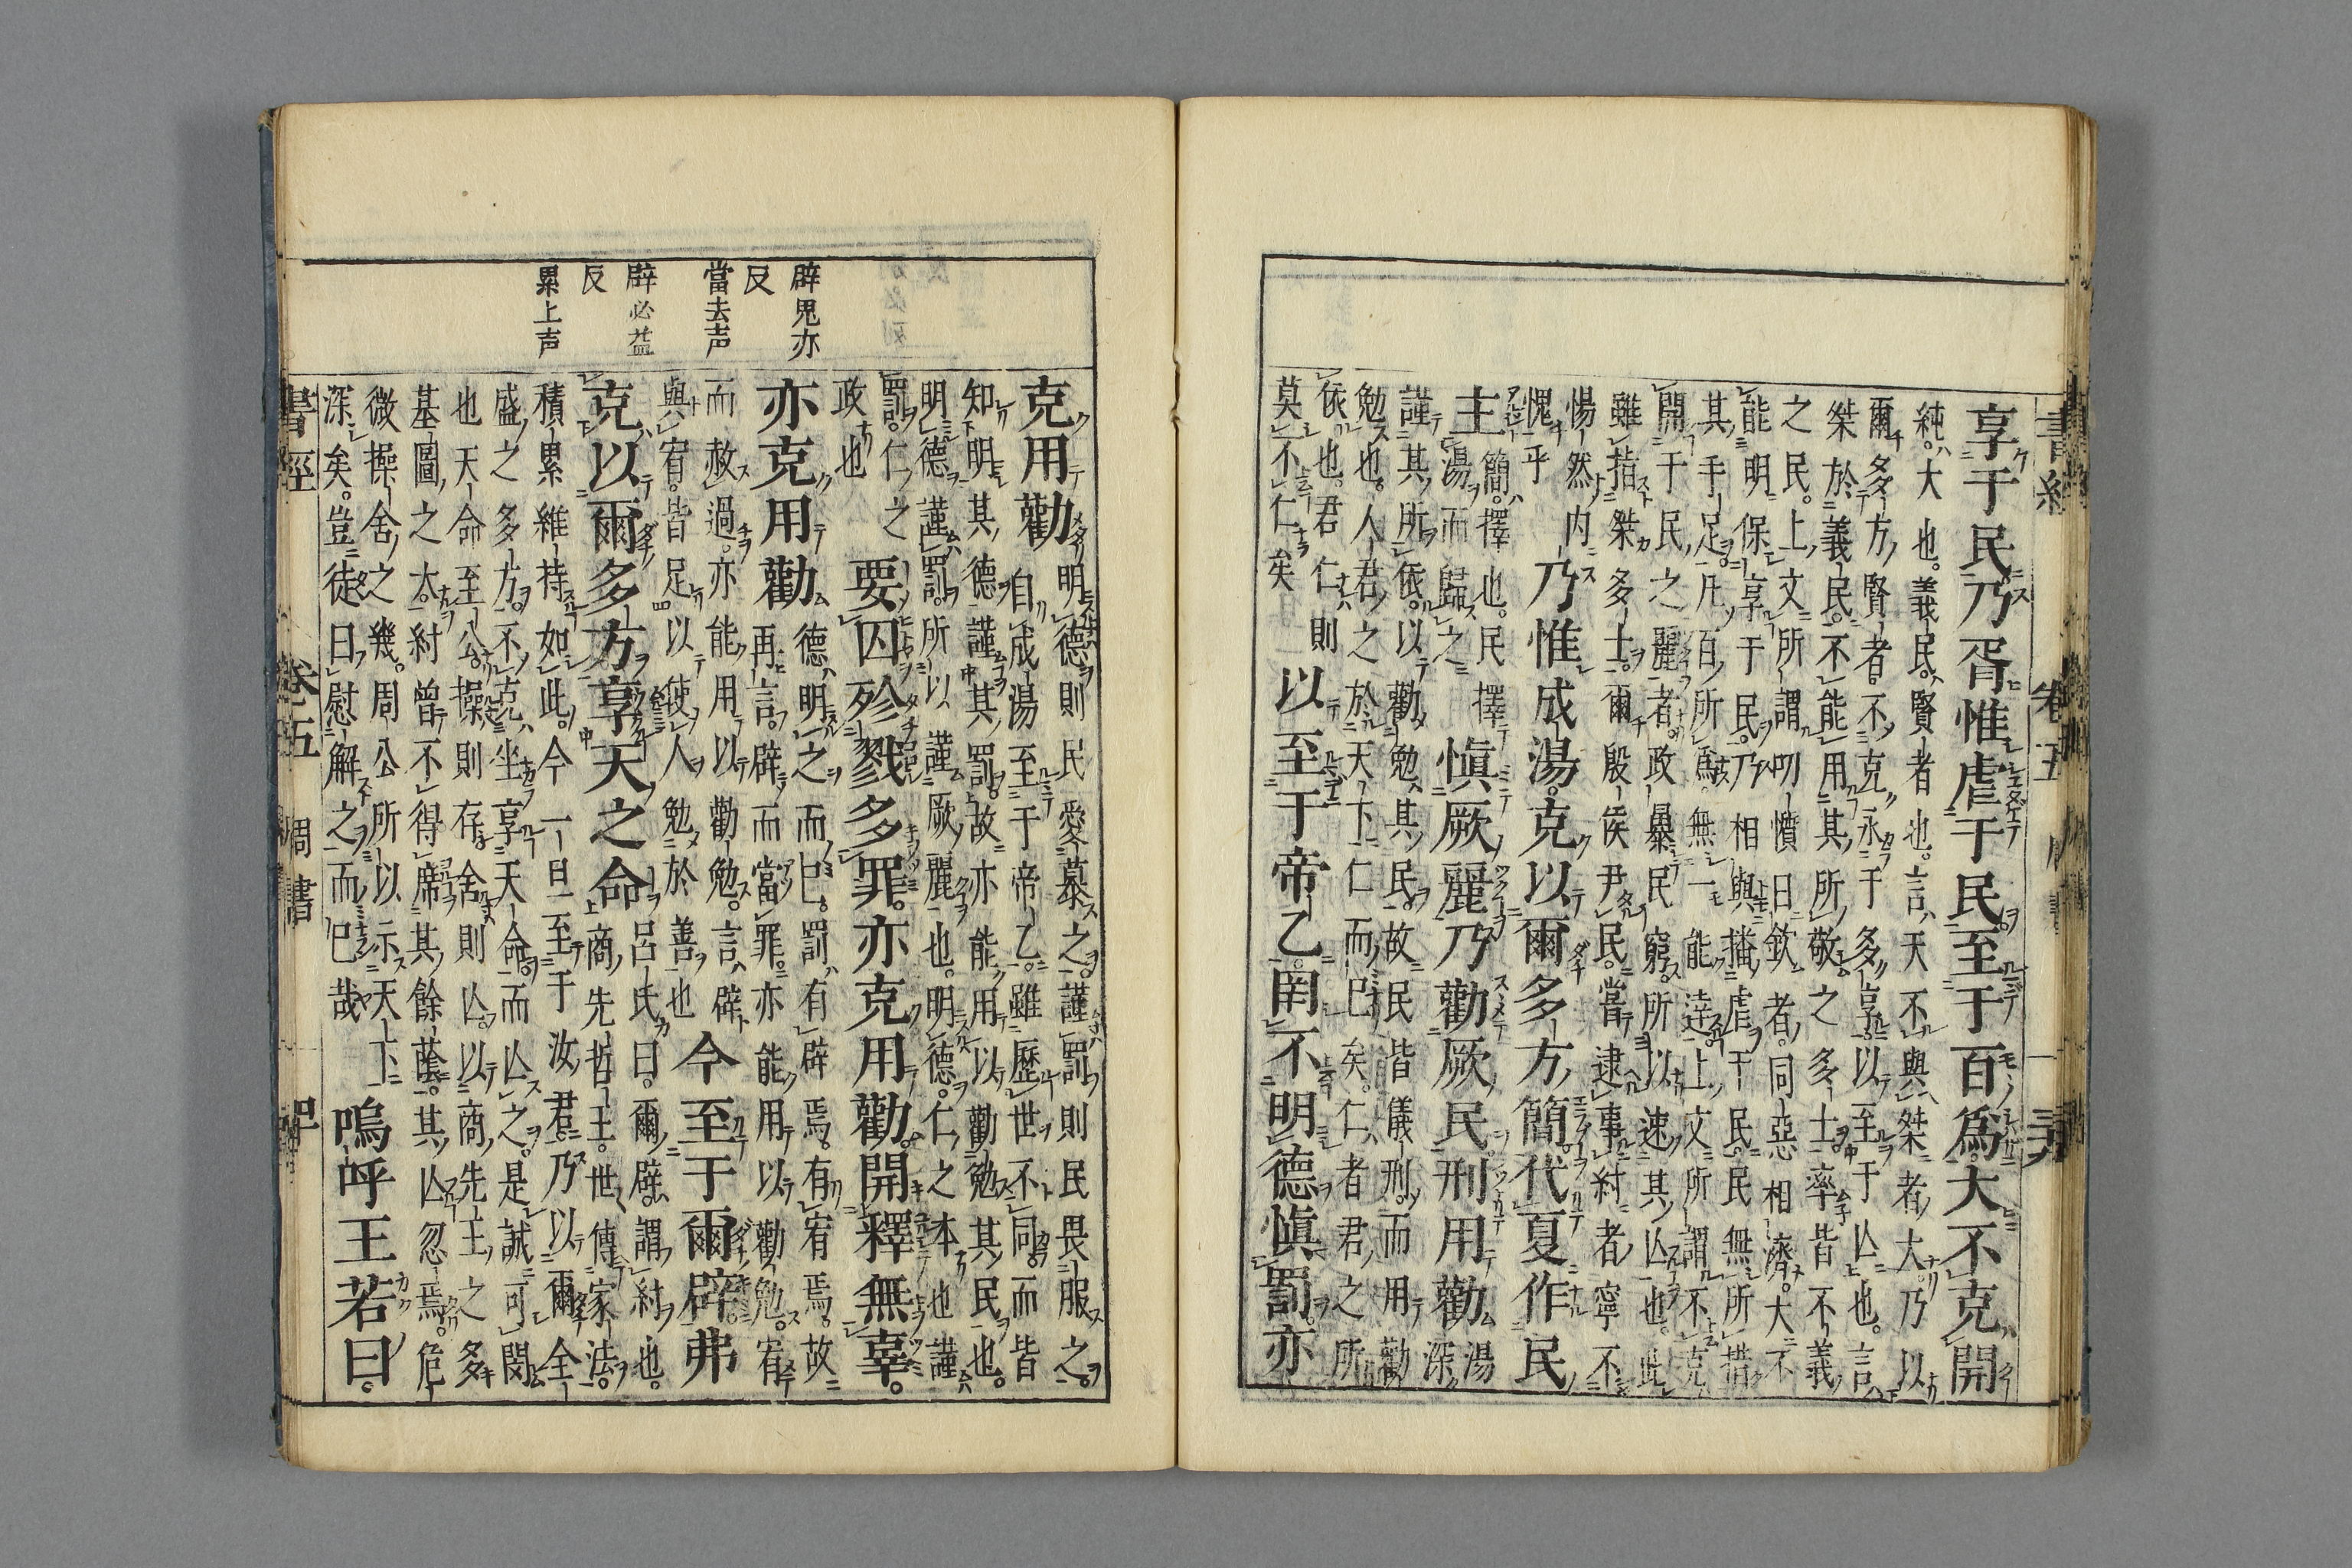 書經 卷五 周書
享于民乃胥惟虐于民至于百爲大不克開
純大也義民賢者也言天不與桀者大乃以
爾多方賢者不克永于多享以至于亡也言
桀於義民不能用其所敬之多士率皆不義
之民上文所謂叨懫日欽者同惡相濟大不
能明保享于民乃相與播虐于民民無所措
其手足凡百所爲無一能逹上文所謂不克
開于民之麗者政暴民窮所以速其亡也此
雖指桀多士爾殷侯尹民當逮事紂者寧不
惕然内
愧乎
乃惟成湯克以爾多方簡代夏作民
主
簡擇也民擇
湯而歸之
愼厥麗乃勸厥民刑用勸
湯
深
謹其所依以勸勉其民故民皆儀刑而用勸
勉也人君之於天下仁而已矣仁者君之所
依也君仁則
莫不仁矣
以至于帝乙罔不明德愼罰亦
辟毘亦
反
當去声
辟必益
反
累上声
克用勸
明德則民愛慕之謹罰則民畏服之
自成湯至于帝乙雖歷世不同而皆
知明其德謹其罰故亦能用以勸勉其民也
明德謹罰所以謹厥麗也明德仁之本也謹
罰仁之
政也
要囚殄戮多罪亦克用勸開釋無辜
亦克用勸
德明之而已罰有辟焉有宥焉故
再言辟而當罪亦能用以勸勉宥
而赦過亦能用以勸勉言辟
與宥皆足以使人勉於善也
今至于爾辟弗
克以爾多方享天之命
呂氏曰爾辟謂紂也
商先哲王世傳家法
積累維持如此今一旦至于汝君乃以爾全
盛之多方不克坐享天命而亡之是誠可閔
也天命至公操則存舍則亡以商先王之多
基圖之大紂曾不得席其餘蔭其亡忽焉危
微操舍之幾周公所以示天下
深矣豈徒曰慰解之而已哉
嗚呼王若曰
書經 卷五 周書